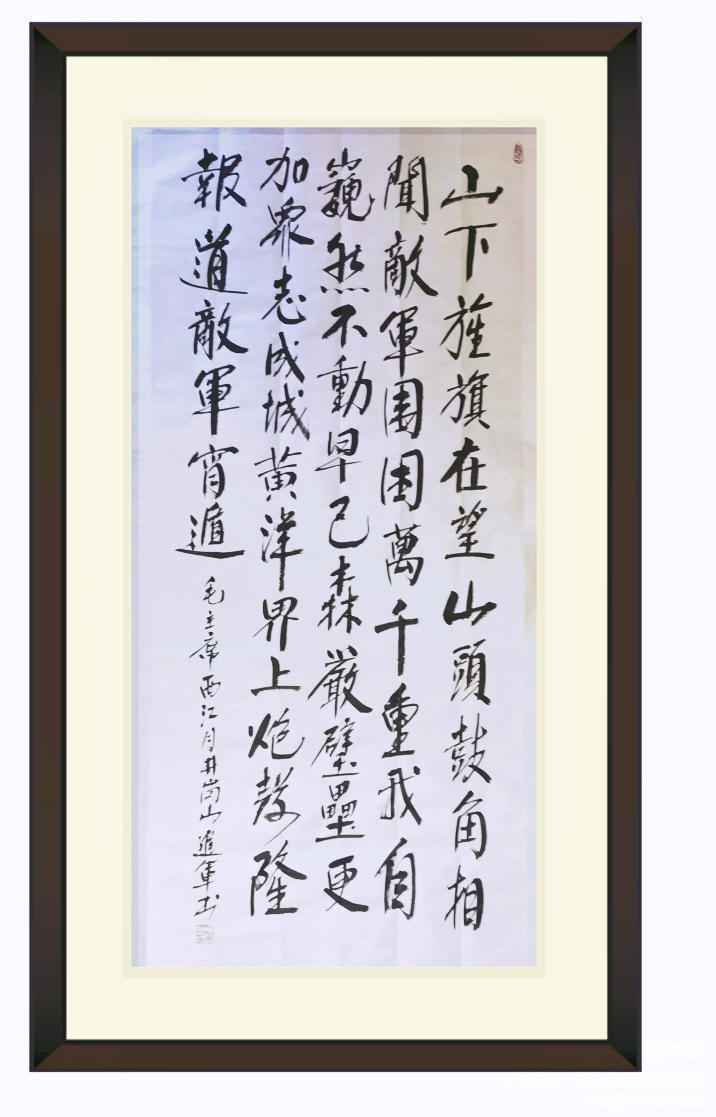 山下旌旗在望山頭鼓角相
聞敵軍围困萬千重我自
巍然不動早已森嚴壁壘更
加衆志成城黄洋界上炮聲隆
報道敵軍宵遁
毛主席西江月井崗山進軍书